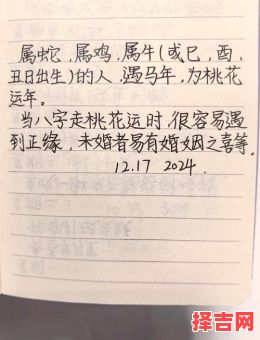 属蛇，属鸡，属牛（或巳，酉，
丑日出生）的人，遇马年，为桃花
运年。
当八字走桃花运时，很容易遇
到正缘，未婚者易有婚姻之喜等.
12.17 2024.
择吉网